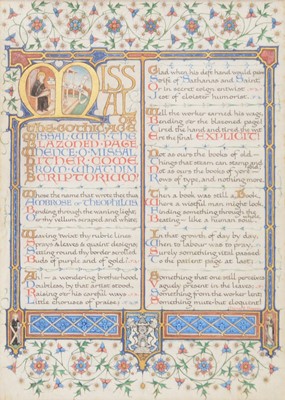 MISSAL
OF
THE GOTHIC AGE
MISSAL WITH THE
BLAZONED PAGE
WHENCE O MISSAL
HITHER COME
FROM WHAT DIM
SCRIPTORIUM
Whose the name that wrought thee thus
Ambrose or Theophilus,
Bending through the waning light,
O'er thy vellum scraped and white;
Weaving 'twixt thy rubric lines
Sprays & leaves & quaint designs;
Setting round thy border scrolled
Buds of purple and of gold?
Ah! – a wondering brotherhood,
Doubtless, by that artist stood,
Raising o'er his careful ways
Little choruses of praise;
Glad when his deft hand would paint
Strife of Sathanas and Saint,
Or in secret coign entwist
Jest of cloister humorist.
Well the worker earned his wage,
Bending o'er the blazoned page!
Tired the hand and tired the wit
Ere the final EXPLICIT!
Not as ours the books of old –
Things that steam can stamp and fold;
Not as ours the books of yore –
Rows of type, and nothing more.
Then a book was still a Book,
Where a wistful man might look,
Finding something through the whole,
Beating – like a human soul.
In that growth of day by day,
When to labour was to pray,
Surely something vital passed
To the patient page at last;
Something that one still perceives
Vaguely present in the leaves;
Something from the worker lent;
Something mute – but eloquent!